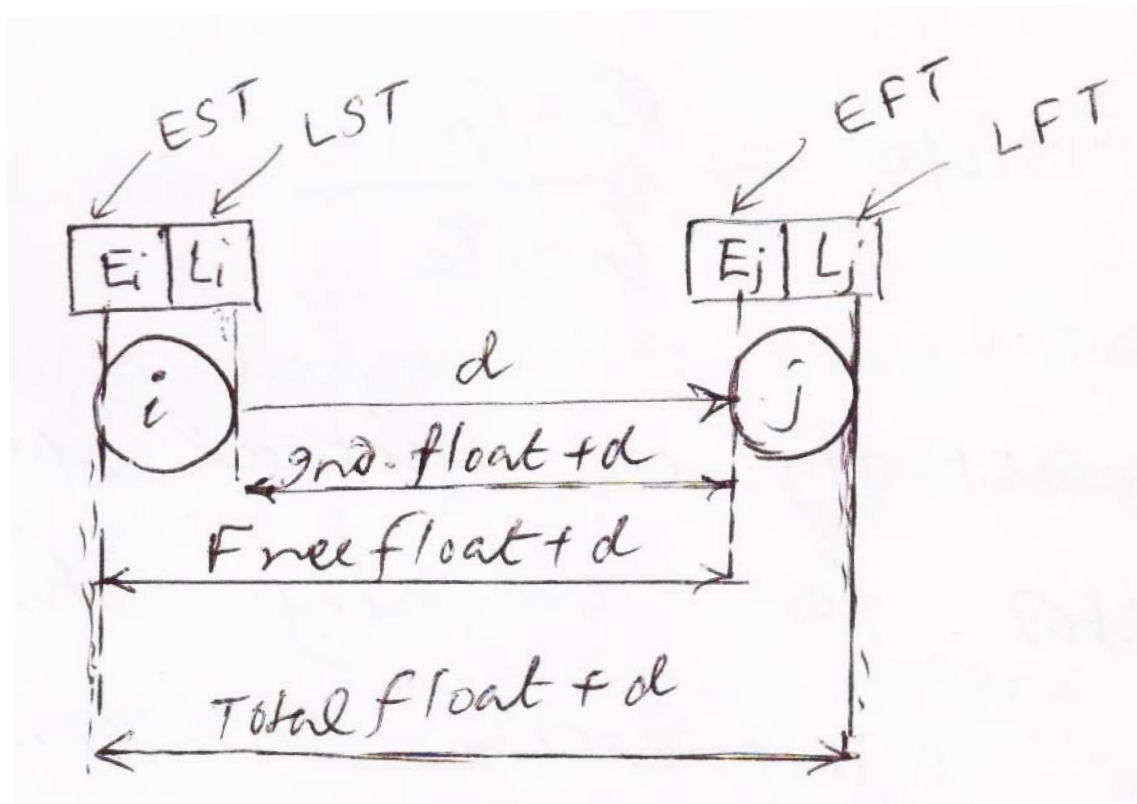 EST LST EFT LFT
Ei Li Ej Lj
d
i j
Ind. float + d
Free float + d
Total float + d